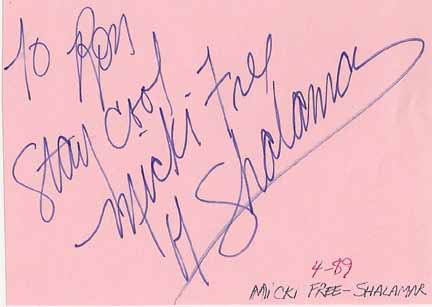 To Ron
Stay Cool
Micki Free
of Shalamar
4-89
MICKI FREE-SHALAMAR